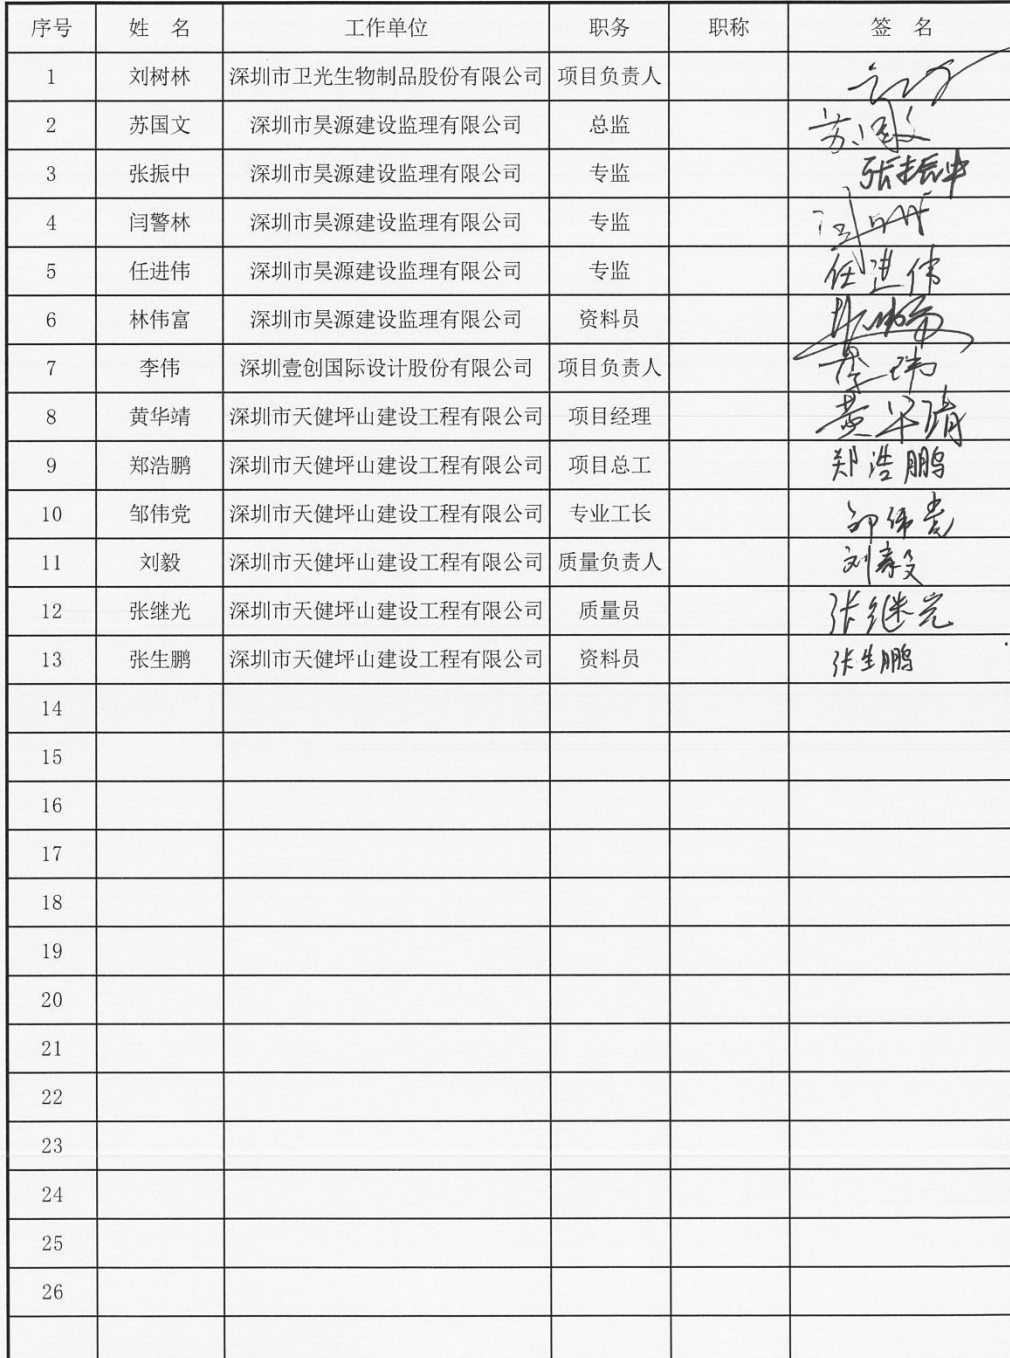 序号 姓 名 工作单位 职务 职称 签 名
1 刘树林 深圳市卫光生物制品股份有限公司 项目负责人
2 苏国文 深圳市昊源建设监理有限公司 总监 苏国文
3 张振中 深圳市昊源建设监理有限公司 专监 张振中
4 闫警林 深圳市昊源建设监理有限公司 专监
5 任进伟 深圳市昊源建设监理有限公司 专监 任进伟
6 林伟富 深圳市昊源建设监理有限公司 资料员
7 李伟 深圳壹创国际设计股份有限公司 项目负责人
8 黄华靖 深圳市天健坪山建设工程有限公司 项目经理 黄华靖
9 郑浩鹏 深圳市天健坪山建设工程有限公司 项目总工 郑浩鹏
10 邹伟党 深圳市天健坪山建设工程有限公司 专业工长 邹伟党
11 刘毅 深圳市天健坪山建设工程有限公司 质量负责人 刘毅
12 张继光 深圳市天健坪山建设工程有限公司 质量员 张继光
13 张生鹏 深圳市天健坪山建设工程有限公司 资料员 张生鹏
14
15
16
17
18
19
20
21
22
23
24
25
26